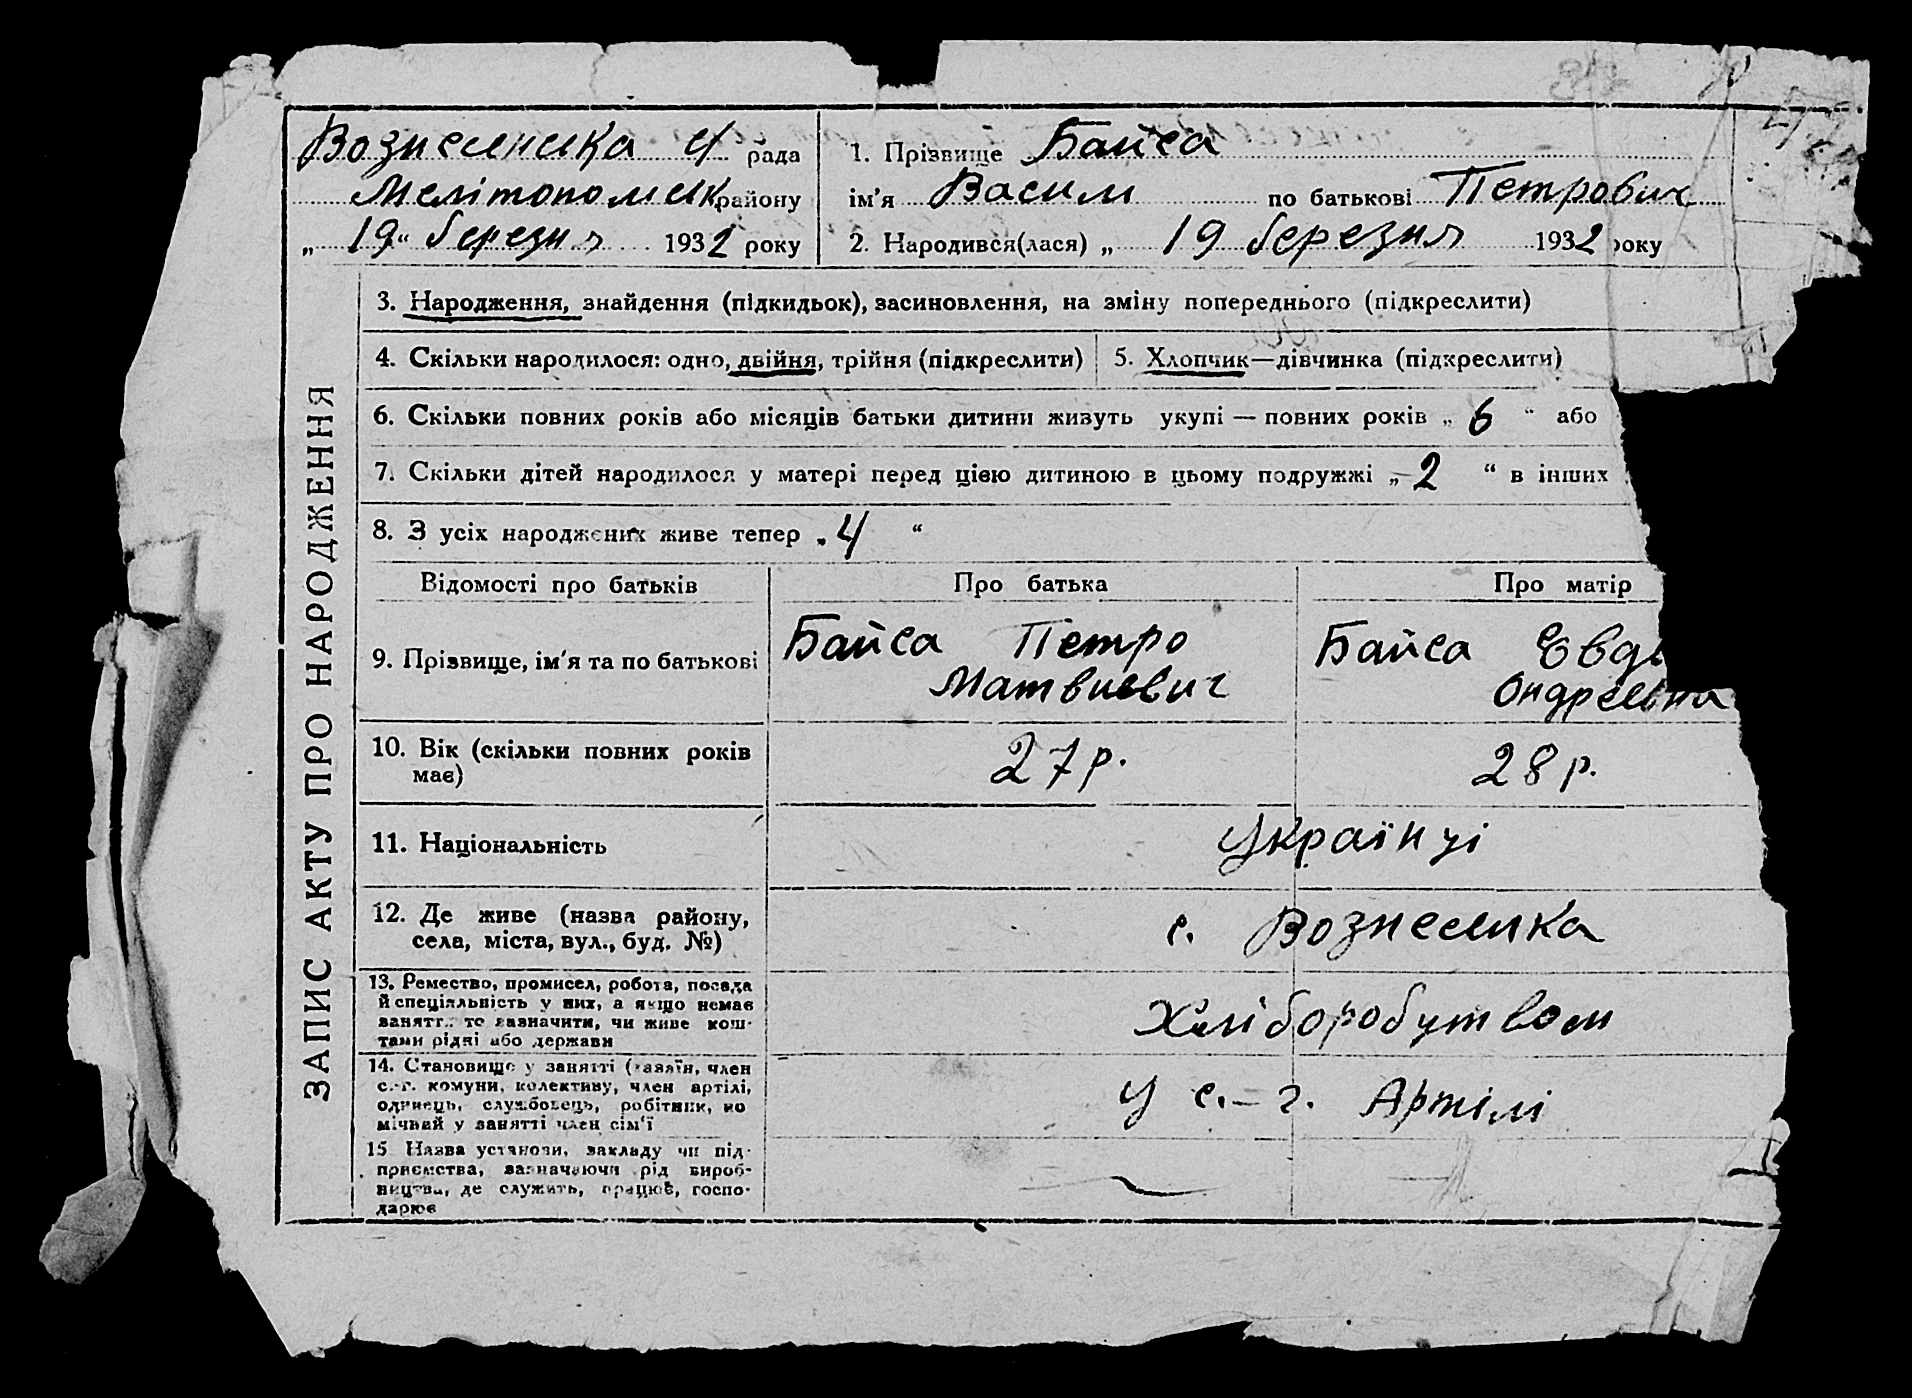 Вознесенска с/ рада
Мелітопольськ району
„ 19 “ березня 1932 року
1. Прізвище Байса
ім’я Василь по батькові Петрович
2. Народився(лася) „ 19 березня 1932 року
ЗАПИС АКТУ ПРО НАРОДЖЕННЯ
3. Народження, знайдення (підкидьок), засиновлення, на зміну попереднього (підкреслити)
4. Скільки народилося: одно, двійня, трійня (підкреслити)
5. Хлопчик—дівчинка (підкреслити)
6. Скільки повних років або місяців батьки дитини живуть укупі — повних років „ 6 “ або
7. Скільки дітей народилося у матері перед цією дитиною в цьому подружжі „ 2 “ в інших
8. З усіх народжених живе тепер „ 4 “
Відомості про батьків Про батька Про матір
9. Прізвище, ім’я та по батькові Байса Петро Байса Євд
Матвиевич Ондреевна
10. Вік (скільки повних років 27 р. 28 р.
має)
11. Національність Українці
12. Де живе (назва району, с. Вознесенка
села, міста, вул., буд. №)
13. Ремество, промисел, робота, посада
й спеціяльність у них, а якщо немає
заняття, то зазначити, чи живе кош-
тами рідні або держави
Хліборобством
14. Становище у занятті (хазяїн, член
с.-г. комуни, колективу, член артілі,
одинець, службовець, робітник, по
мічний у занятті член сім’ї
у с.-г. Артілі
15 Назва установи, закладу чи під-
приємства, зазначаючи рід вироб-
ництва, де служить, працює, госпо-
дарює